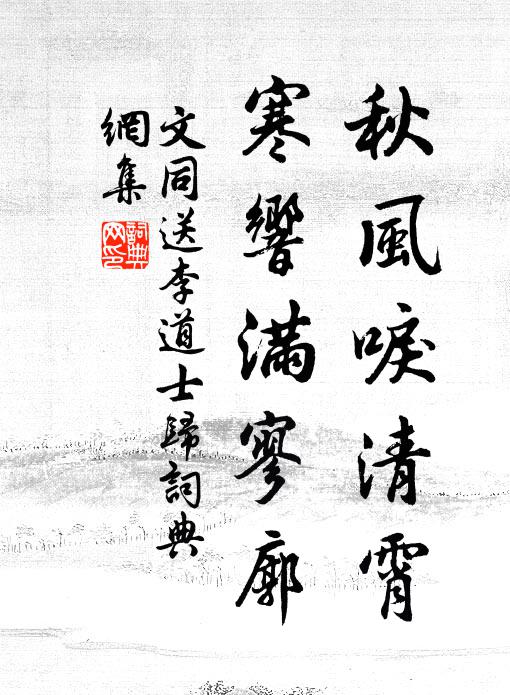 秋風唳清霄
寒響滿寥廓
文同送李道士歸詞典
網集
詞典
网印